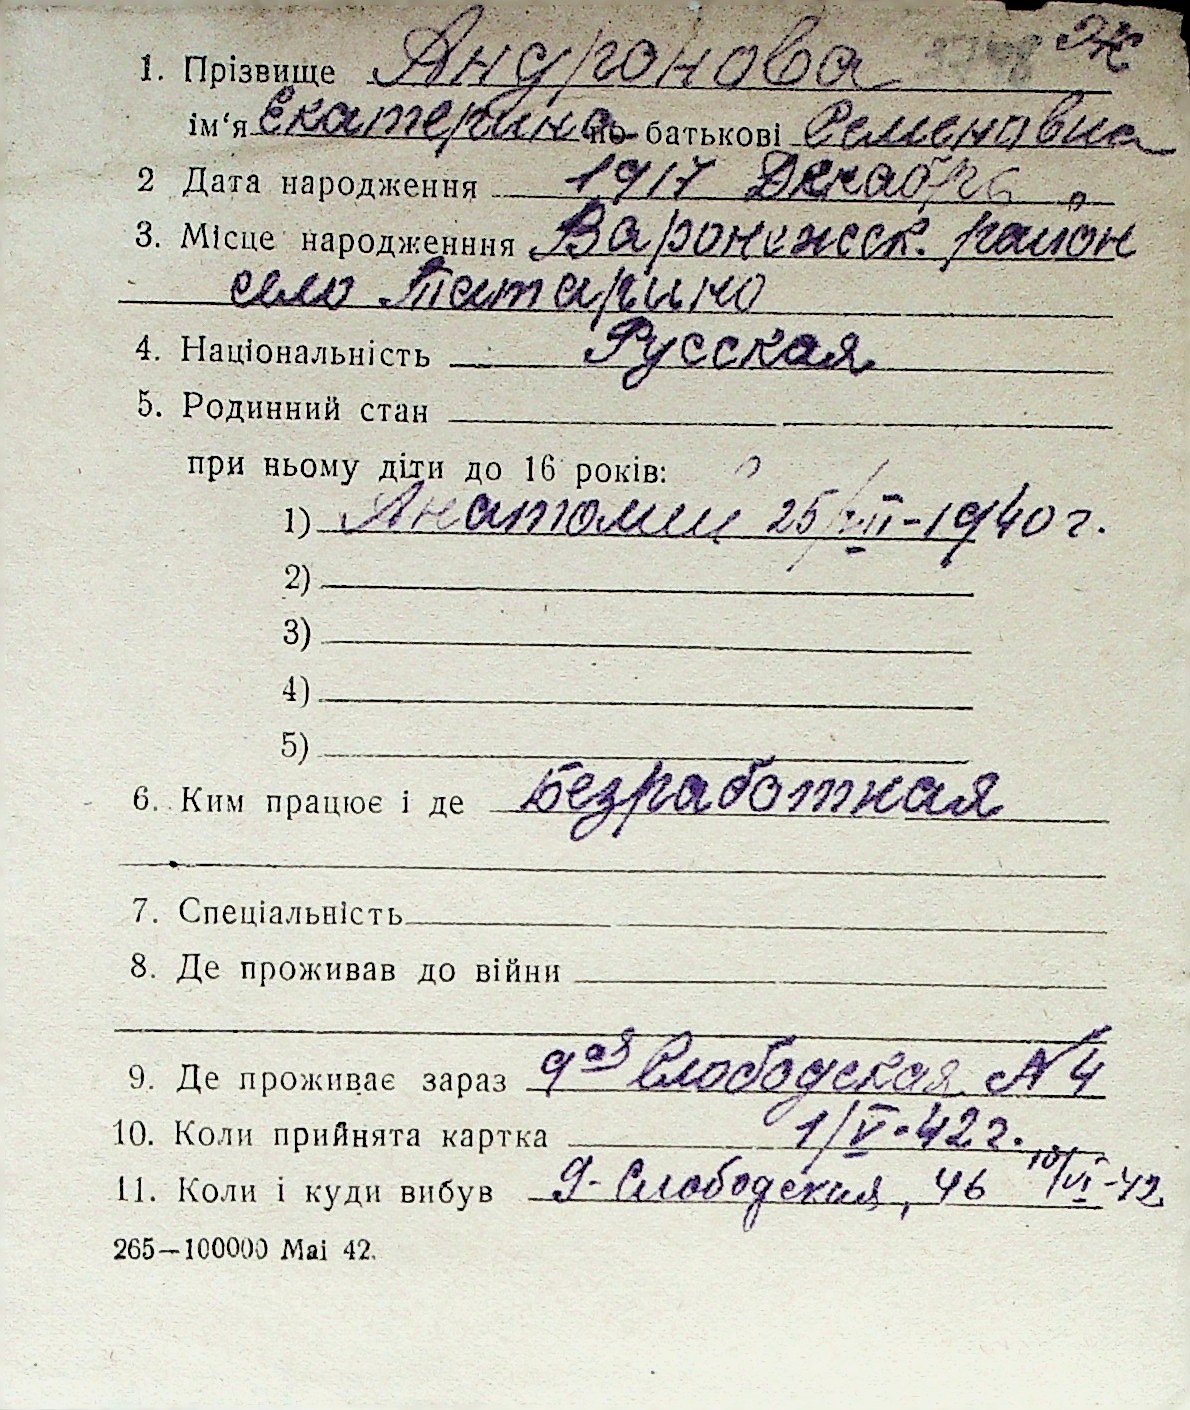 Ж
1. Прізвище Андронова
ім‘я Екатерина по батькові Семеновна
2 Дата народження 1917 Декабрь
3. Місце народженння Варонежск. район
село Татарино
4. Національність Русская
5. Родинний стан
при ньому діти до 16 років:
1) Анатолий 25/VII-1940 г.
2)
3)
4)
5)
6. Ким працює і де Безработная
7. Спеціальність
8. Де проживав до війни
9. Де проживає зараз 9ая Слободская №4
10. Коли прийнята картка 1/V-42 г.
11. Коли і куди вибув 9-Слободская, 46 10/VI-42
265—100000 Маі 42.